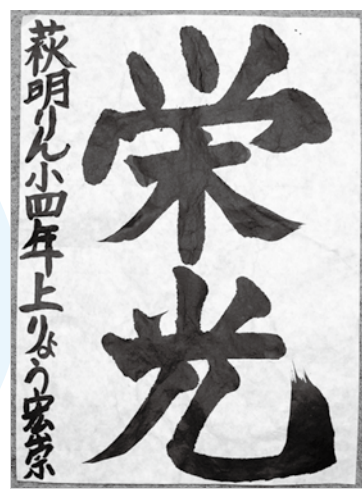 栄光
萩明りん小四年上りょう宏崇